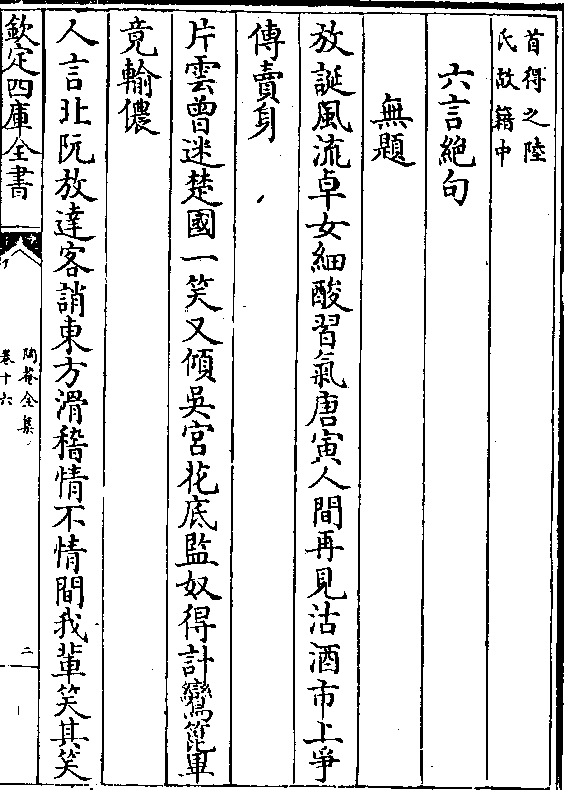 首得之陸
氏故籍中
六言絶句
無題
放誕風流卓女細酸習氣唐寅人間再見沽酒市上爭
傳賣身
片雲曾迷楚國一笑又傾吳宮花底監奴得計鸞篦畢
竟輸儂
人言北阮放達客誚東方滑稽情不情間我輩笑其笑
欽定四庫全書
陶菴全集
卷十六
二